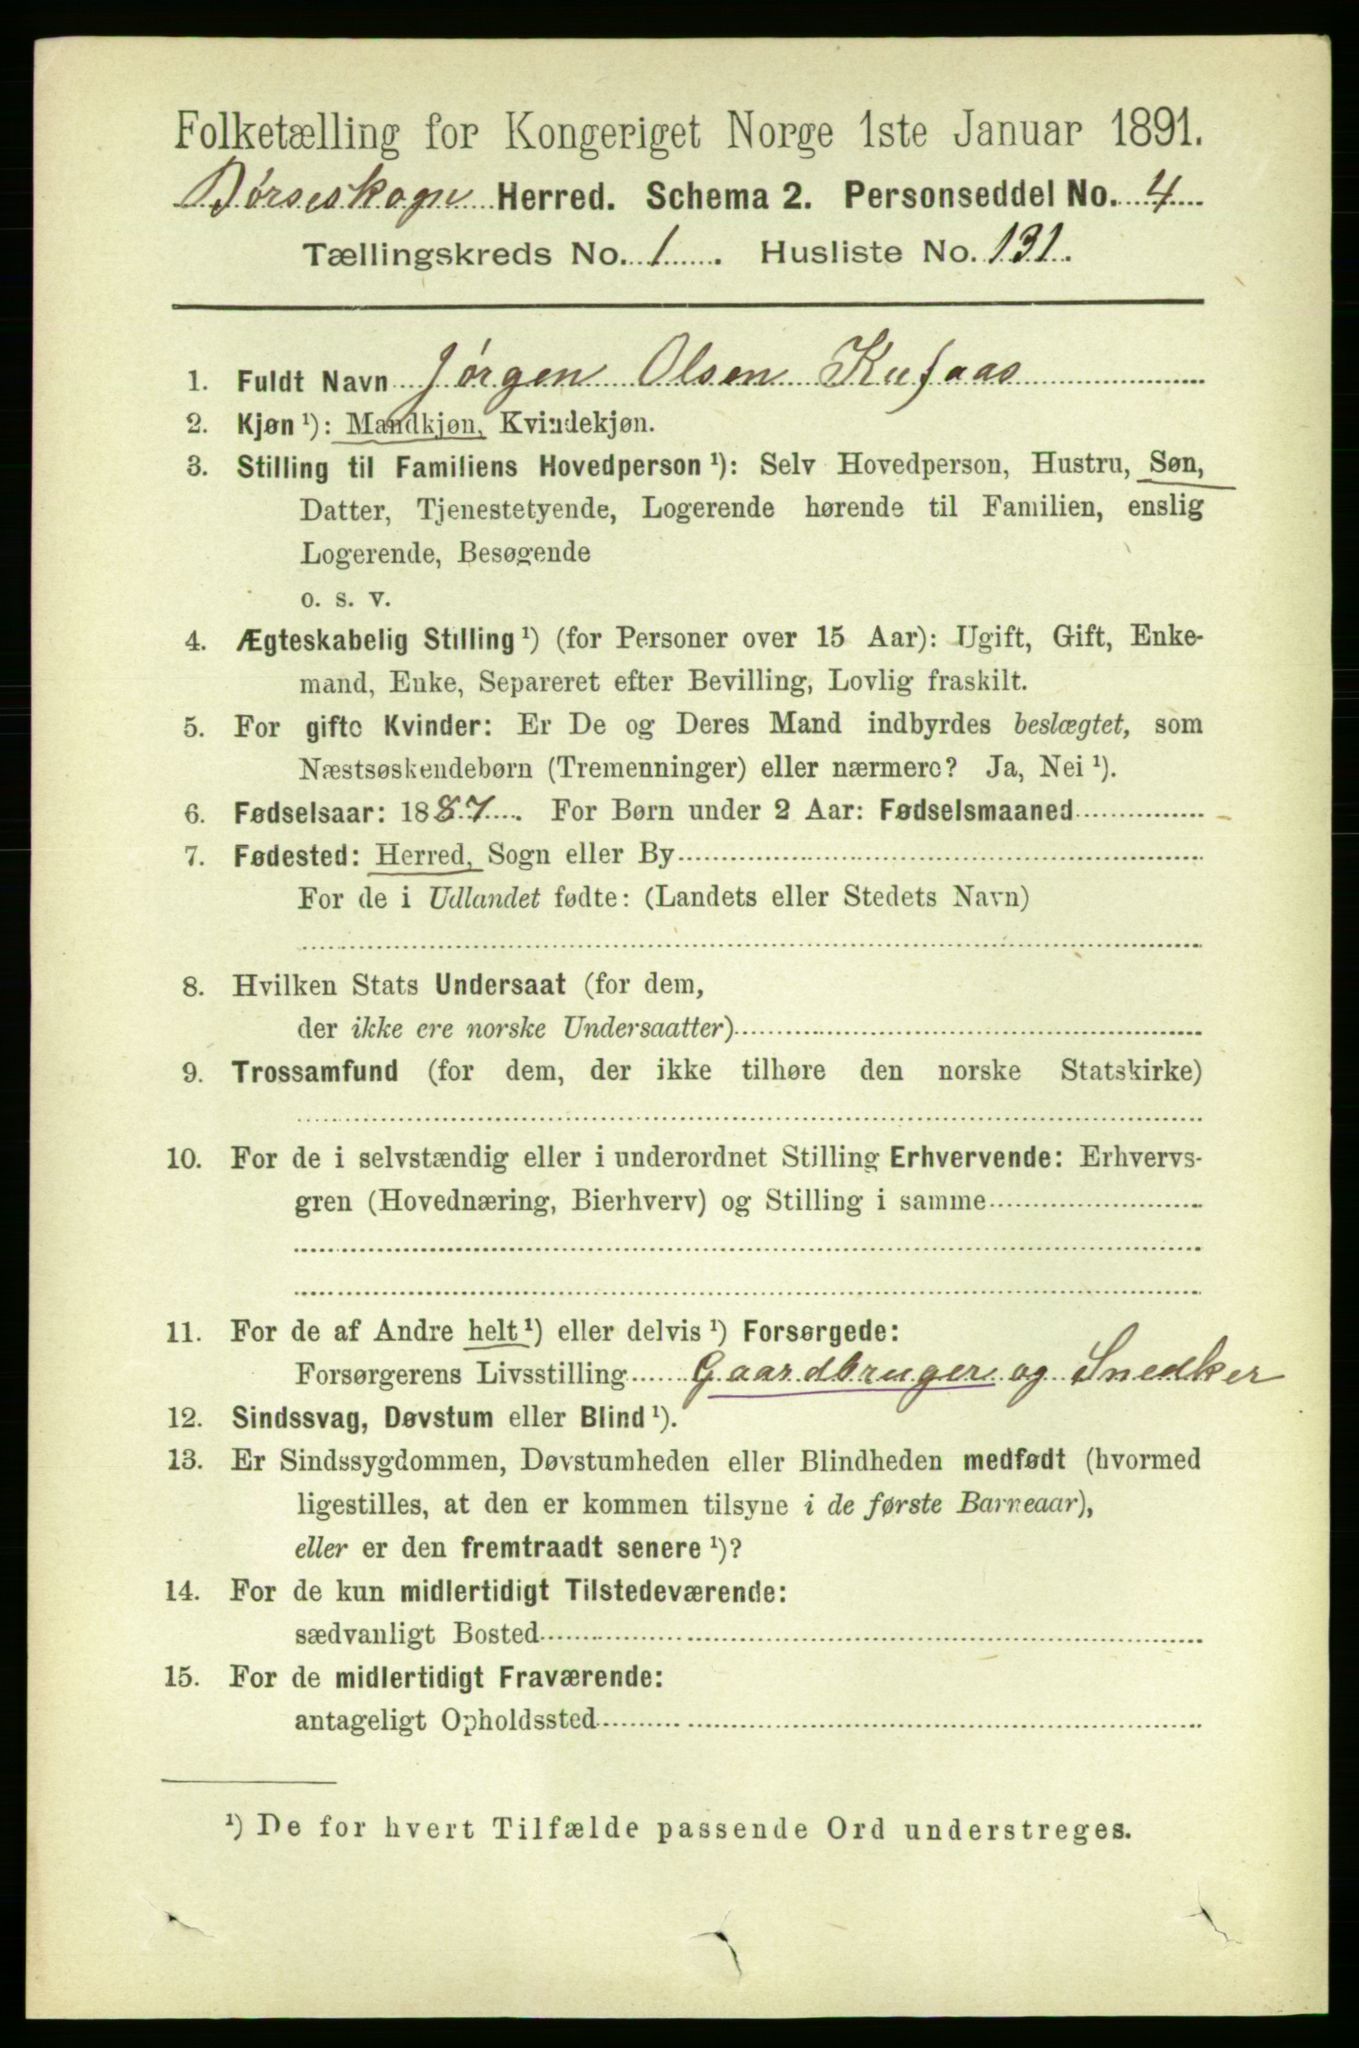 Folketælling for Kongeriget Norge 1ste Januar 1891.
Børseskogn Herred. Schema 2. Personseddel No. 4
Tællingskreds No. 1. Husliste No. 131.
1. Fuldt Navn Jørgen Olsen Kufaas
2. Kjøn ¹): Mandkjøn, Kvindekjøn.
3. Stilling til Familiens Hovedperson ¹): Selv Hovedperson, Hustru, Søn,
Datter, Tjenestetyende, Logerende hørende til Familien, enslig
Logerende, Besøgende
o. s. v.
4. Ægteskabelig Stilling ¹) (for Personer over 15 Aar): Ugift, Gift, Enke-
mand, Enke, Separeret efter Bevilling, Lovlig fraskilt.
5. For gifte Kvinder: Er De og Deres Mand indbyrdes beslægtet, som
Næstsøskendebørn (Tremenninger) eller nærmere? Ja, Nei ¹).
6. Fødselsaar: 1887. For Børn under 2 Aar: Fødselsmaaned
7. Fødested: Herred, Sogn eller By
For de i Udlandet fødte: (Landets eller Stedets Navn)
8. Hvilken Stats Undersaat (for dem,
der ikke ere norske Undersaatter)
9. Trossamfund (for dem, der ikke tilhøre den norske Statskirke)
10. For de i selvstændig eller i underordnet Stilling Erhvervende: Erhvervs-
gren (Hovednæring, Bierhverv) og Stilling i samme
11. For de af Andre helt ¹) eller delvis ¹) Forsørgede:
Forsørgerens Livsstilling Gaardbruger og Snedker
12. Sindssvag, Døvstum eller Blind ¹).
13. Er Sindssygdommen, Døvstumheden eller Blindheden medfødt (hvormed
ligestilles, at den er kommen tilsyne i de første Barneaar),
eller er den fremtraadt senere ¹)?
14. For de kun midlertidigt Tilstedeværende:
sædvanligt Bosted
15. For de midlertidigt Fraværende:
antageligt Opholdssted
¹) De for hvert Tilfælde passende Ord understreges.